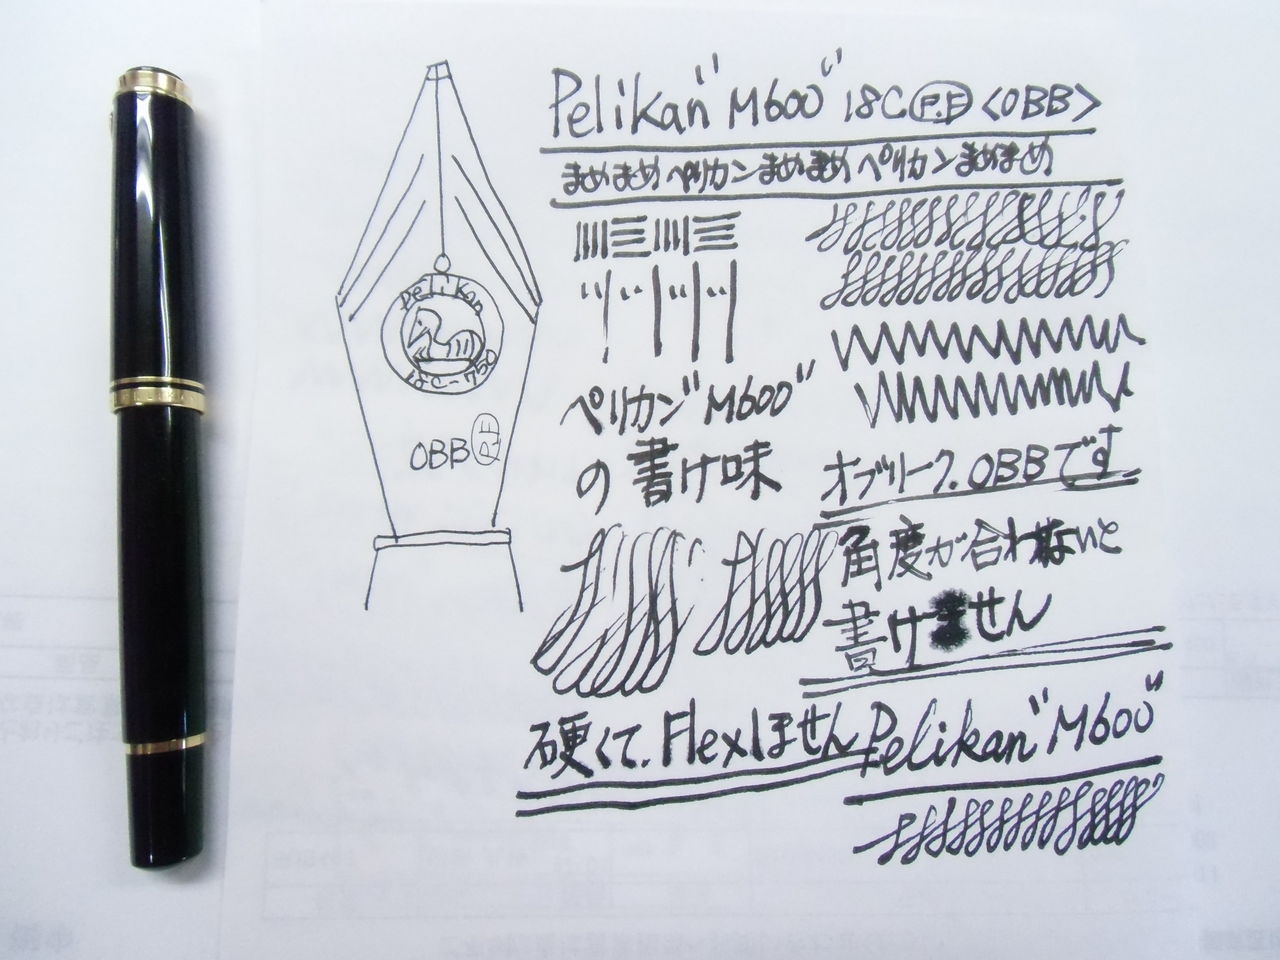 Pelikan "M600" 18C P.F <OBB>
まめまめペリカンまめまめペリカンまめまめ
Pelikan
18C-750
OBB PF
ペリカン"M600"
の書け味
オブリーク.OBBです
角度が合わないと
書けません
硬くて.Flexしません
Pelikan "M600"